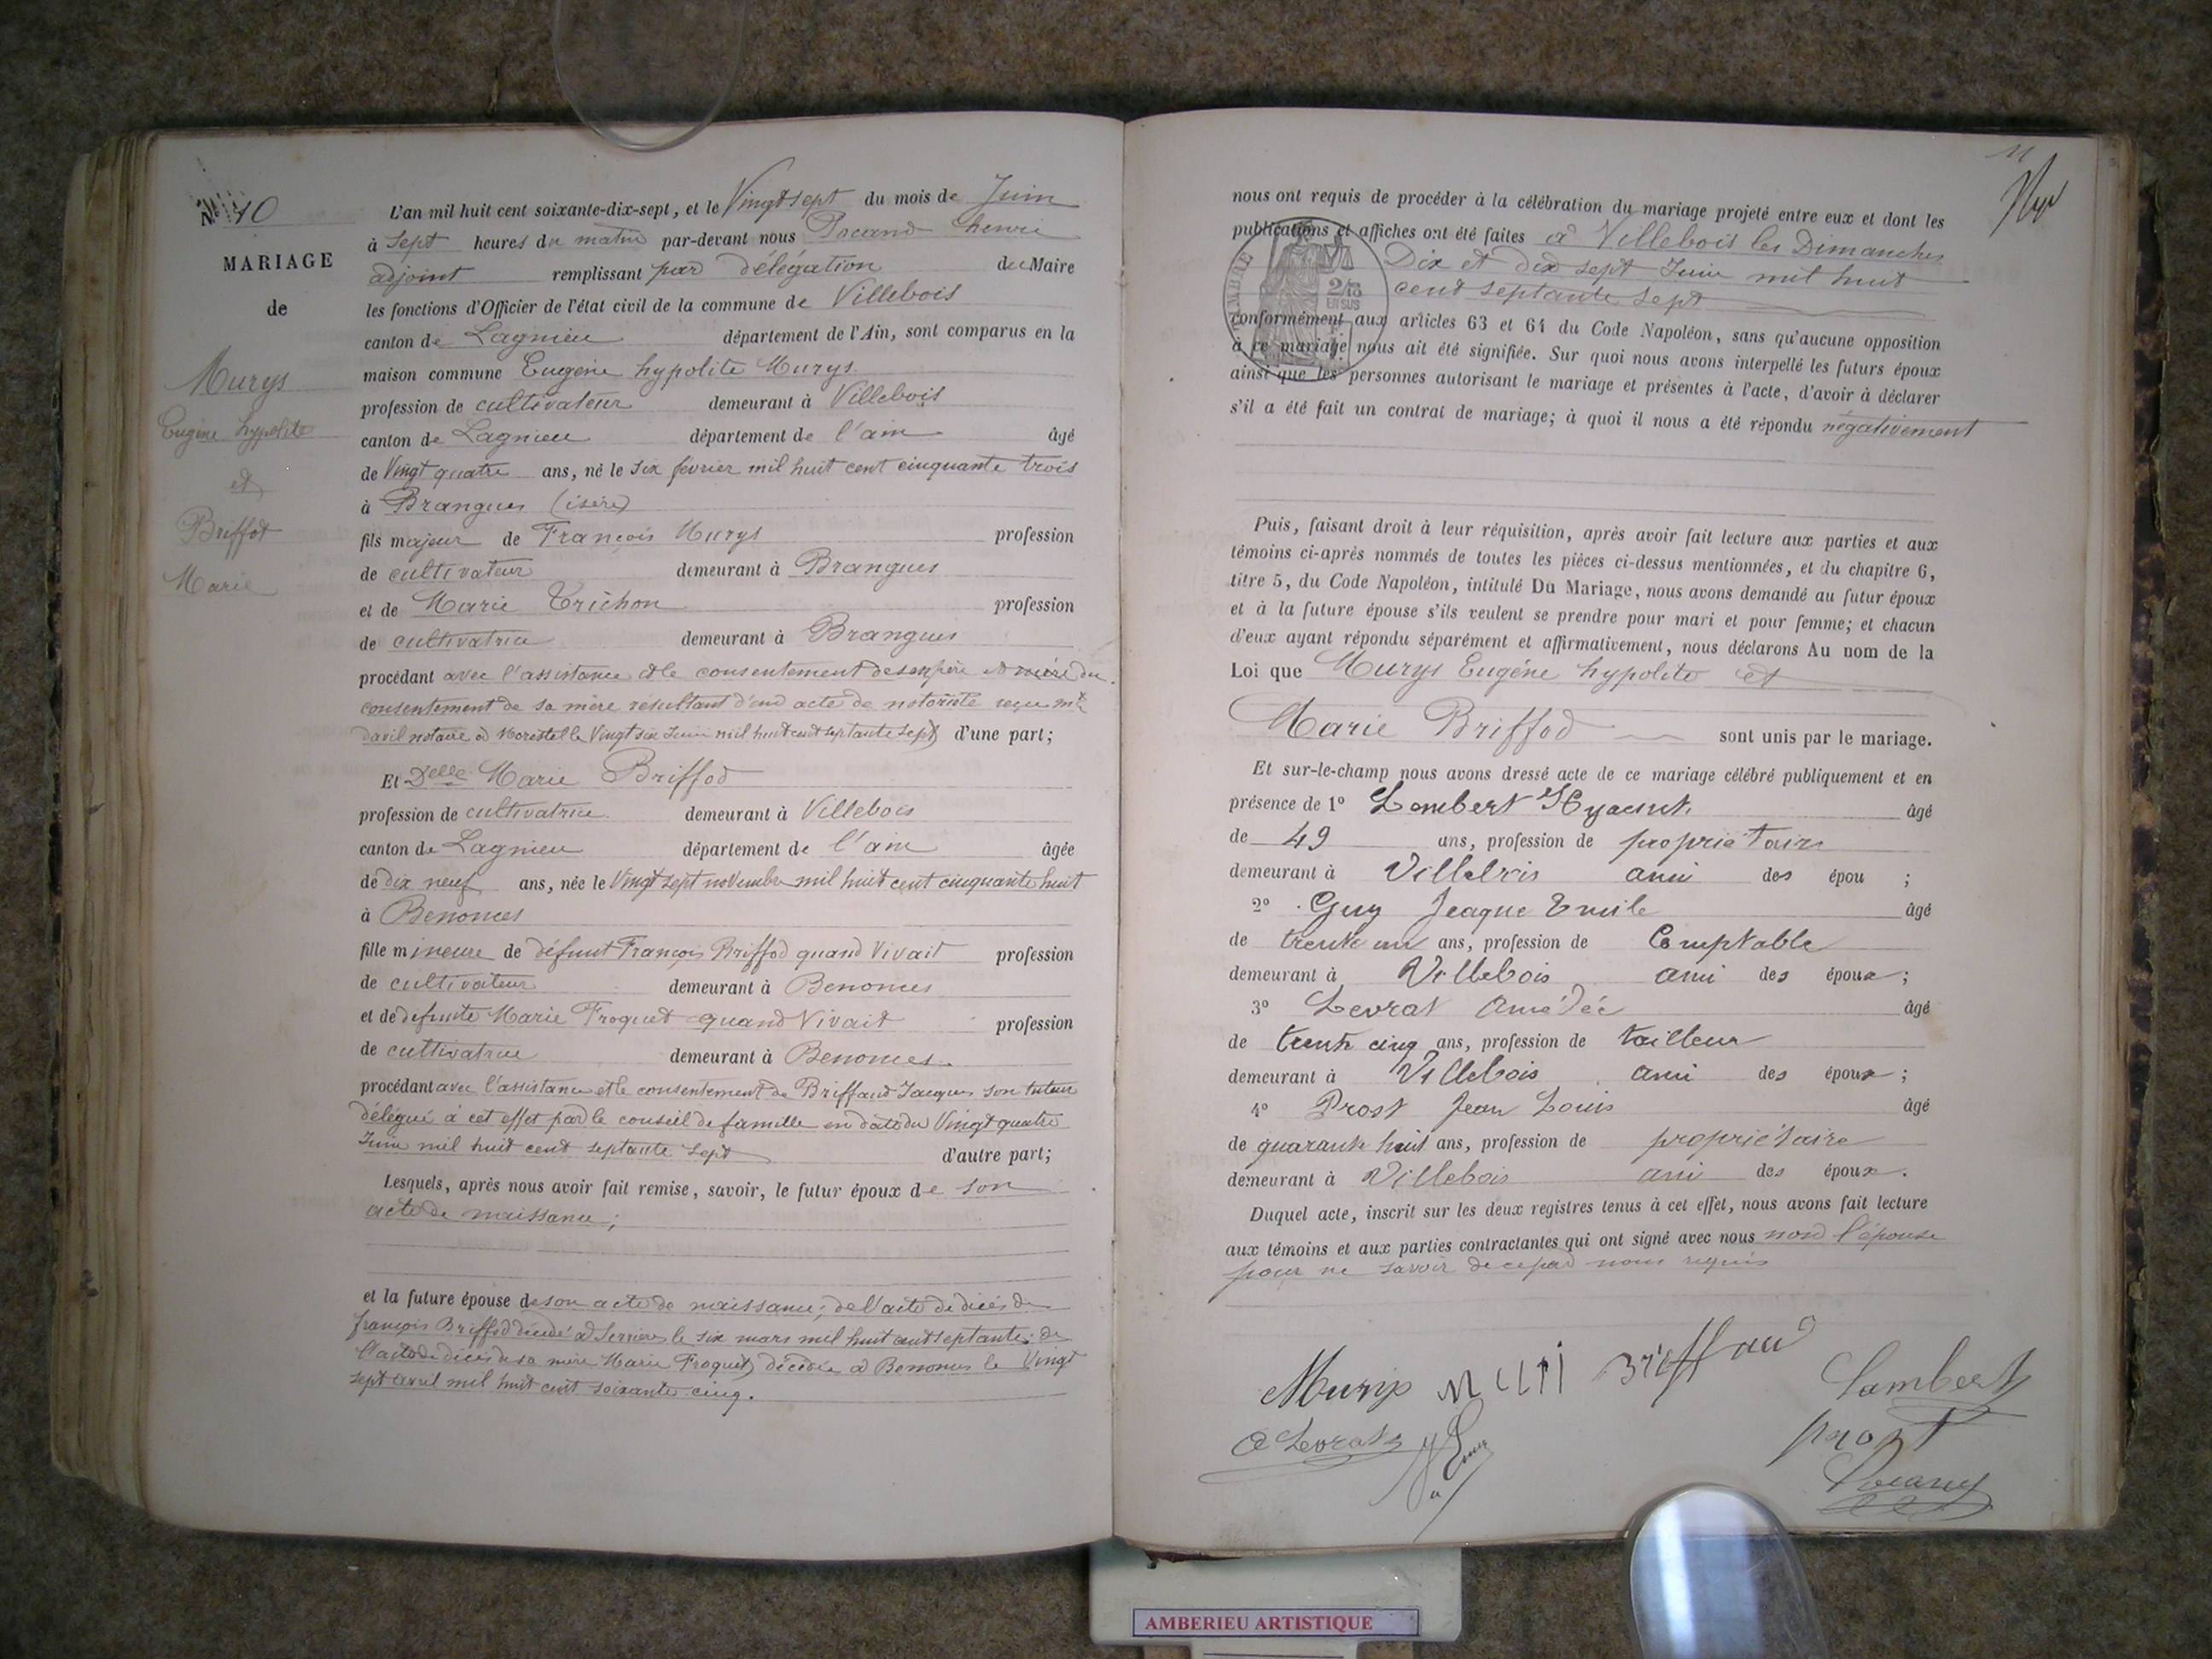 N° 10
MARIAGE
de
Murys
Eugène hypolite
et
Briffot
Marie
L'an mil huit cent soixante-dix-sept, et le Vingt sept du mois de Juin
à Sept heures du matin par-devant nous Pocand henri
adjoint remplissant par délégation du Maire
les fonctions d'Officier de l'état civil de la commune de Villebois
canton de Lagnieu département de l'Ain, sont comparus en la
maison commune Eugène hypolite Murys
profession de cultivateur demeurant à Villebois
canton de Lagnieu département de l'ain âgé
de Vingt quatre ans, né le six février mil huit cent cinquante trois
à Brangues (isère)
fils majeur de François Murys profession
de cultivateur demeurant à Brangues
et de Marie Trichon profession
de cultivatrice demeurant à Brangues
procédant avec l'assistance et le consentement de son père et mère du
consentement de sa mère résultant d'un acte de notoriété reçu mtre
david notaire à Morestel le Vingt six Juin mil huit cent septante sept d'une part;
Et Delle Marie Briffod
profession de cultivatrice demeurant à Villebois
canton de Lagnieu département de l'ain âgée
de dix neuf ans, née le Vingt sept novembre mil huit cent cinquante huit
à Benonces
fille mineure de défunt François Briffod quand Vivait profession
de cultivateur demeurant à Benonces
et de défunte Marie Froquet quand Vivait profession
de cultivatrice demeurant à Benonces
procédant avec l'assistance et le consentement de Briffaud Jacques son tuteur
délégué à cet effet par le conseil de famille en date du Vingt quatre
Juin mil huit cent septante sept d'autre part;
Lesquels, après nous avoir fait remise, savoir, le futur époux de son
acte de naissance;
et la future épouse de son acte de naissance; de l'acte de décès de
françois Briffod décédé à Serrières le six mars mil huit cent septante; de
l'acte de décès de sa mère Marie Froquet, décédée à Benonces le Vingt
sept avril mil huit cent soixante cinq.
11
nous ont requis de procéder à la célébration du mariage projeté entre eux et dont les
publications et affiches ont été faites à Villebois les Dimanches
Dix et dix sept Juin mil huit
cent septante sept
TIMBRE
2/10
EN SUS
conformément aux articles 63 et 64 du Code Napoléon, sans qu'aucune opposition
à ce mariage nous ait été signifiée. Sur quoi nous avons interpellé les futurs époux
ainsi que les personnes autorisant le mariage et présentes à l'acte, d'avoir à déclarer
s'il a été fait un contrat de mariage; à quoi il nous a été répondu négativement
Puis, faisant droit à leur réquisition, après avoir fait lecture aux parties et aux
témoins ci-après nommés de toutes les pièces ci-dessus mentionnées, et du chapitre 6,
titre 5, du Code Napoléon, intitulé Du Mariage, nous avons demandé au futur époux
et à la future épouse s'ils veulent se prendre pour mari et pour femme; et chacun
d'eux ayant répondu séparément et affirmativement, nous déclarons Au nom de la
Loi que Murys Eugène hypolite et
Marie Briffod sont unis par le mariage.
Et sur-le-champ nous avons dressé acte de ce mariage célébré publiquement et en
présence de 1° Lombert Hyacinte âgé
de 49 ans, profession de propriétaire
demeurant à Villebois ami des épou ;
2° Guy Jeaque Emile âgé
de trente un ans, profession de Comptable
demeurant à Villebois ami des époux;
3° Levrat Amédée âgé
de trente cinq ans, profession de tailleur
demeurant à Villebois ami des époux;
4° Prost Jean Louis âgé
de quarante huit ans, profession de propriétaire
demeurant à Villebois ami des époux.
Duquel acte, inscrit sur les deux registres tenus à cet effet, nous avons fait lecture
aux témoins et aux parties contractantes qui ont signé avec nous non l'épouse
pour ne savoir de ce par nous requis
Murys Briffaud Lambert
A Levrat prost
Pocand
AMBERIEU ARTISTIQUE